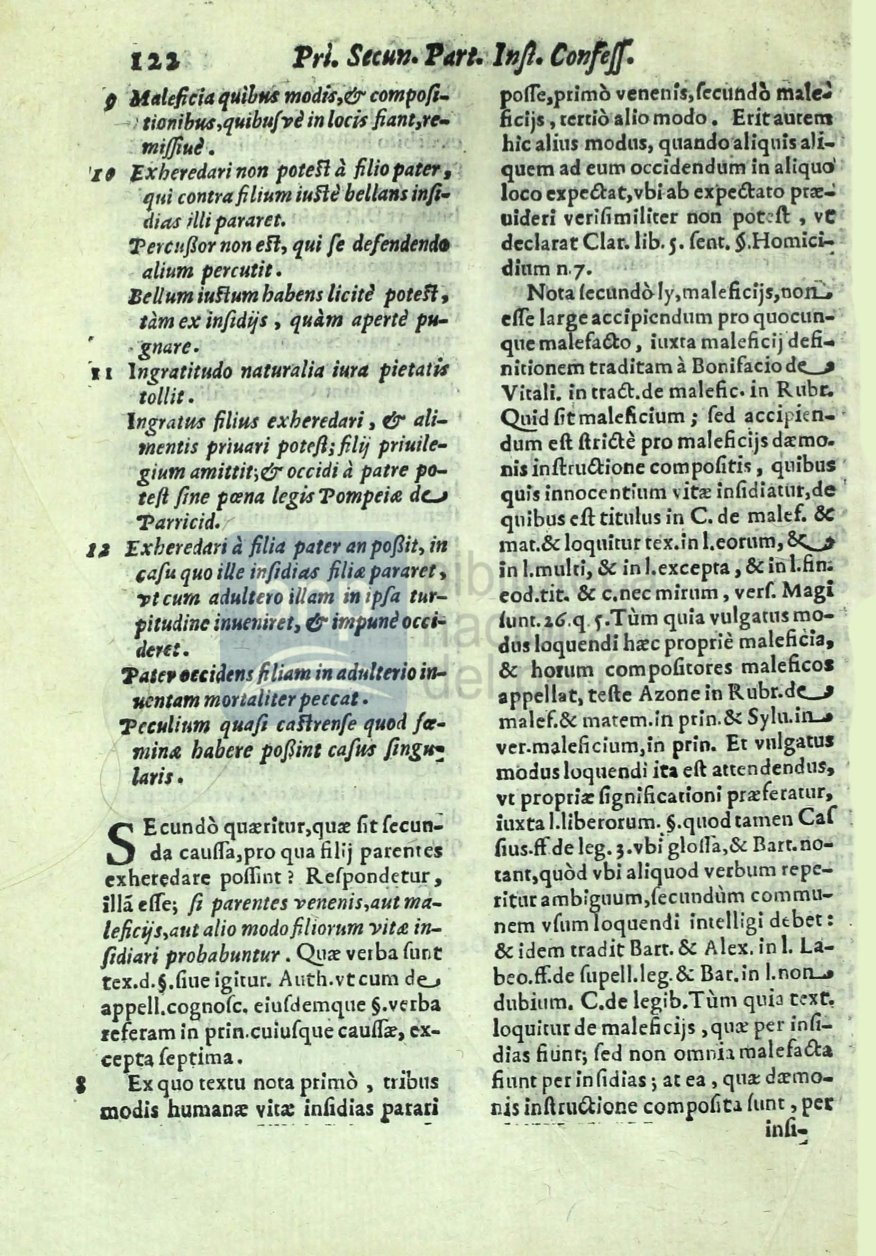 122 Pri. Secun. Part. Inſt. Confeſſ.
9 Maleficia quibus modis, & compoſi-
tionibus, quibuſvè in locis fiant, re-
miſſiuè.
10 Exheredari non poteſt à filio pater,
qui contra filium iuſtè bellans inſi-
dias illi pararet.
Percußor non eſt, qui ſe defendendo
alium percutit.
Bellum iuſtum habens licitè poteſt,
tàm ex inſidijs, quàm apertè pu-
gnare.
11 Ingratitudo naturalia iura pietatis
tollit.
Ingratus filius exheredari, & ali-
mentis priuari poteſt; filij priuile-
gium amittit; & occidi à patre po-
teſt ſine pœna legis Pompeiæ de
Parricid.
12 Exheredari à filia pater an poßit, in
caſu quo ille inſidias filiæ pararet,
vt cum adultero illam in ipſa tur-
pitudine inueniret, & impunè occi-
deret.
Pater occidens filiam in adulterio in-
uentam mortaliter peccat.
Peculium quaſi caſtrenſe quod fœ-
minæ habere poßint caſus ſingu-
laris.
SEcundò quæritur, quæ ſit ſecun-
da cauſſa, pro qua filij parentes
exheredare poſſint? Reſpondetur,
illã eſſe; ſi parentes venenis, aut ma-
leficijs, aut alio modo filiorum vitæ in-
ſidiari probabuntur. Quæ verba ſunt
tex. d. §. ſiue igitur. Auth. vt cum de
appell. cognoſc. eiuſdemque §. verba
referam in prin. cuiuſque cauſſæ, ex-
cepta ſeptima.
8 Ex quo textu nota primò, tribus
modis humanæ vitæ inſidias parari
poſſe, primò venenis, ſecundò male-
ficijs, tertiò alio modo. Erit autem
hic alius modus, quando aliquis ali-
quem ad eum occidendum in aliquo
loco expectat, vbi ab expectato præ-
uideri veriſimiliter non poteſt, vt
declarat Clar. lib. 5. ſent. §. Homici-
dium n. 7.
Nota ſecundò ly, maleficijs, non
eſſe large accipiendum pro quocun-
que malefacto, iuxta maleficij defi-
nitionem traditam à Bonifacio de
Vitali. in tract. de malefic. in Rubr.
Quid ſit maleficium; ſed accipien-
dum eſt ſtrictè pro maleficijs dæmo-
nis inſtructione compoſitis, quibus
quis innocentium vitæ inſidiatur, de
quibus eſt titulus in C. de malef. &
mat. & loquitur tex. in l. eorum, &
in l. multi, & in l. excepta, & in l. fin.
eod. tit. & c. nec mirum, verſ. Magi
ſunt. 26. q. 5. Tùm quia vulgatus mo-
dus loquendi hæc propriè maleficia,
& horum compoſitores maleficos
appellat, teſte Azone in Rubr. de
malef. & matem. in prin. & Sylu. in
ver. maleficium, in prin. Et vulgatus
modus loquendi ita eſt attendendus,
vt propriæ ſignificationi præferatur,
iuxta l. liberorum. §. quod tamen Caſ
ſius. ff. de leg. 3. vbi gloſſa, & Bart. no-
tant, quòd vbi aliquod verbum repe-
ritur ambiguum, ſecundùm commu-
nem vſum loquendi intelligi debet:
& idem tradit Bart. & Alex. in l. La-
beo. ff. de ſupell. leg. & Bar. in l. non
dubium. C. de legib. Tùm quia text.
loquitur de maleficijs, quæ per inſi-
dias fiunt; ſed non omnia malefacta
fiunt per inſidias; at ea, quæ dæmo-
nis inſtructione compoſita ſunt, per
inſi-